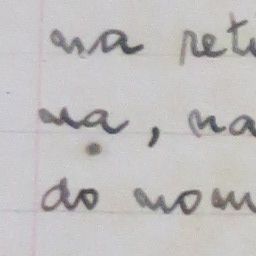 na retu
na, na
do nom